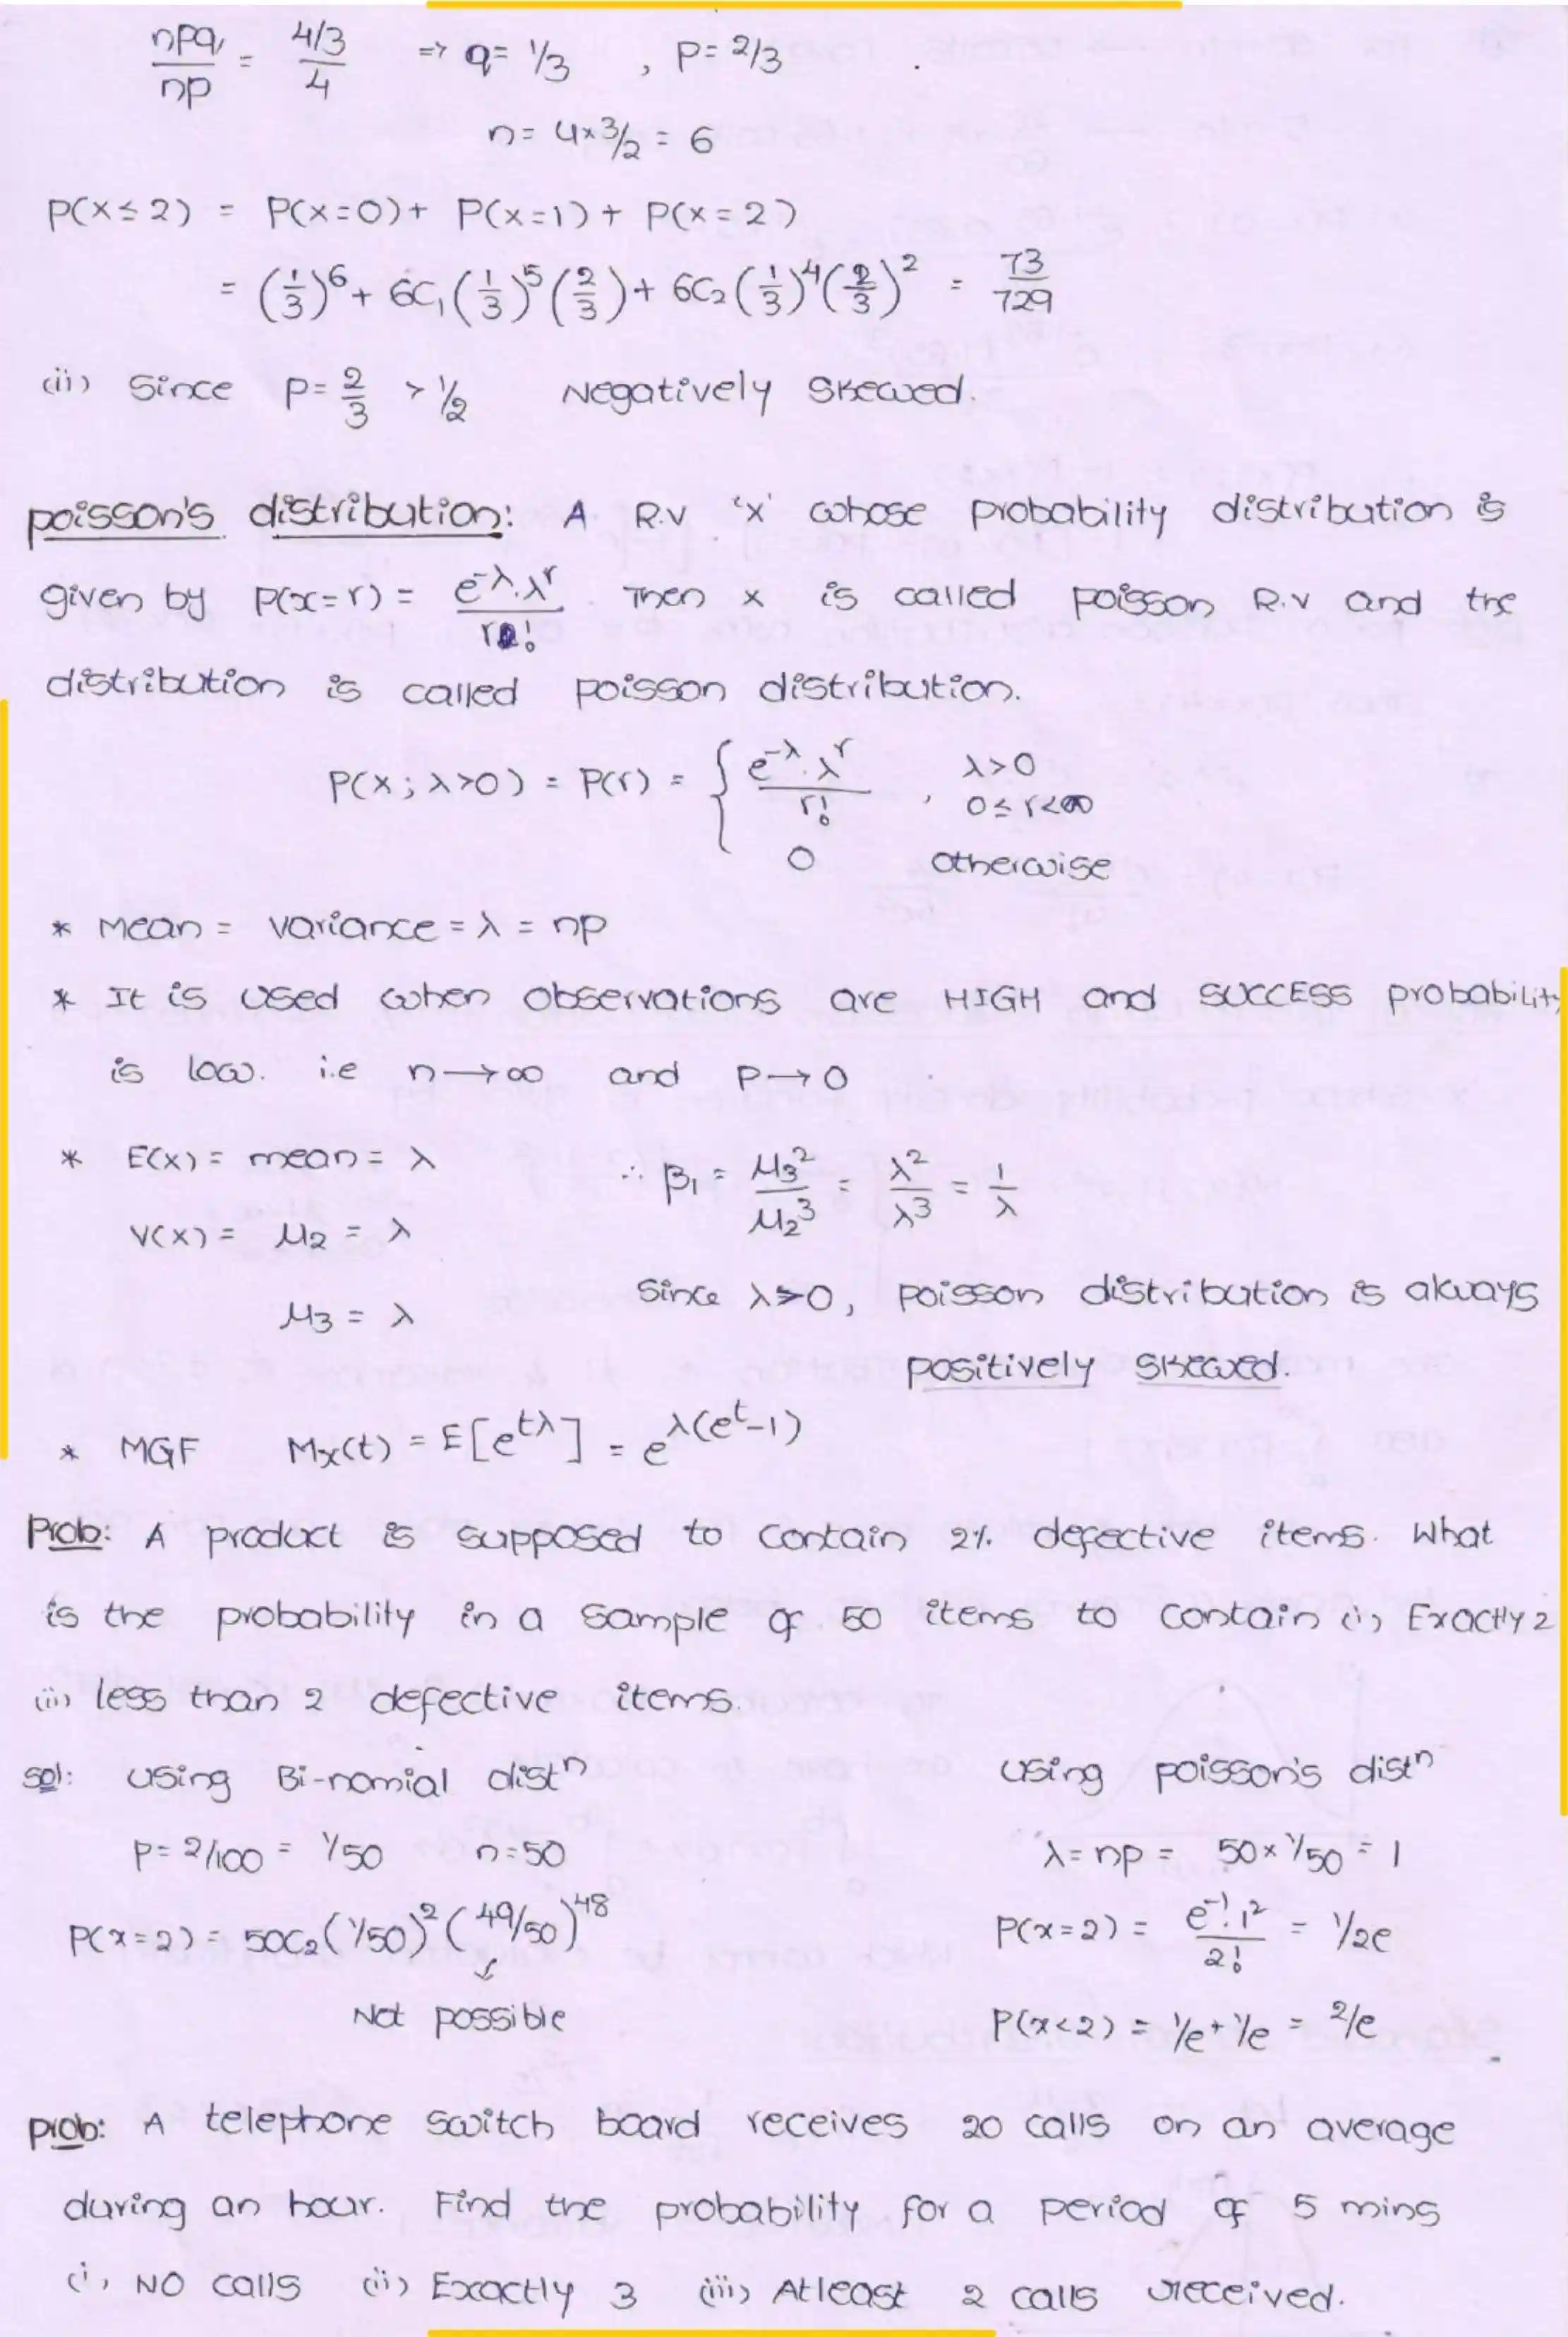 npq/np = (4/3)/4 ⇒ q = 1/3 , P = 2/3
n = 4×3/2 = 6
P(X≤2) = P(X=0) + P(X=1) + P(X=2)
= (1/3)^6 + 6C₁(1/3)^5(2/3) + 6C₂(1/3)^4(2/3)^2 = 73/729
(ii) Since P = 2/3 > 1/2 Negatively Skewed.
poisson's distribution: A R.V 'X' whose probability distribution is
given by P(x=r) = e^-λ.λ^r / r! Then x is called poisson R.V and the
distribution is called poisson distribution.
P(X; λ>0) = P(r) = { e^-λ.λ^r / r! , λ>0
0≤r<∞
0 otherwise
* Mean = variance = λ = np
* It is used when observations are HIGH and SUCCESS probability
is low. i.e n→∞ and P→0
* E(X) = mean = λ ∴ β₁ = μ₃²/μ₂³ = λ²/λ³ = 1/λ
V(X) = μ₂ = λ
μ₃ = λ Since λ>0, poisson distribution is always
positively skewed.
* MGF Mx(t) = E[e^tλ] = e^λ(e^t-1)
Prob: A product is supposed to contain 2% defective items. What
is the probability in a sample of 50 items to contain (i) Exactly 2
(ii) less than 2 defective items.
Sol: using Bi-nomial distⁿ using poisson's distⁿ
P = 2/100 = 1/50 n=50 λ = np = 50×1/50 = 1
P(x=2) = 50C₂(1/50)^2(49/50)^48 P(x=2) = e^-1.1²/2! = 1/2e
↓
Not possible P(x<2) = 1/e + 1/e = 2/e
prob: A telephone switch board receives 20 calls on an average
during an hour. Find the probability for a period of 5 mins
(i) NO calls (ii) Exactly 3 (iii) Atleast 2 calls received.